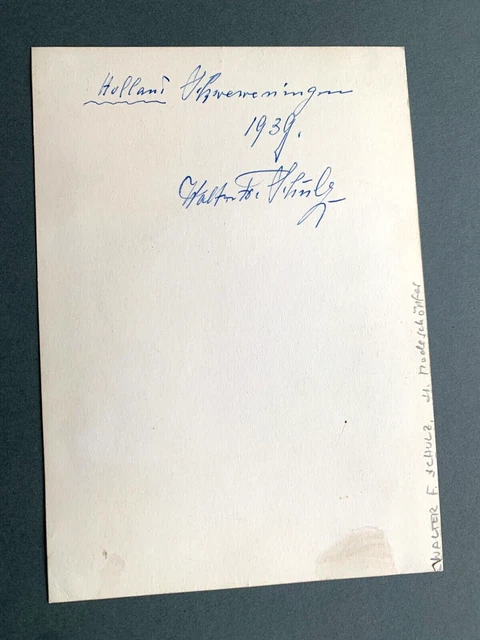 Holland Schweweningen
1939.
Walter F. Schulz
WALTER F. SCHULZ, Modeschöpfer